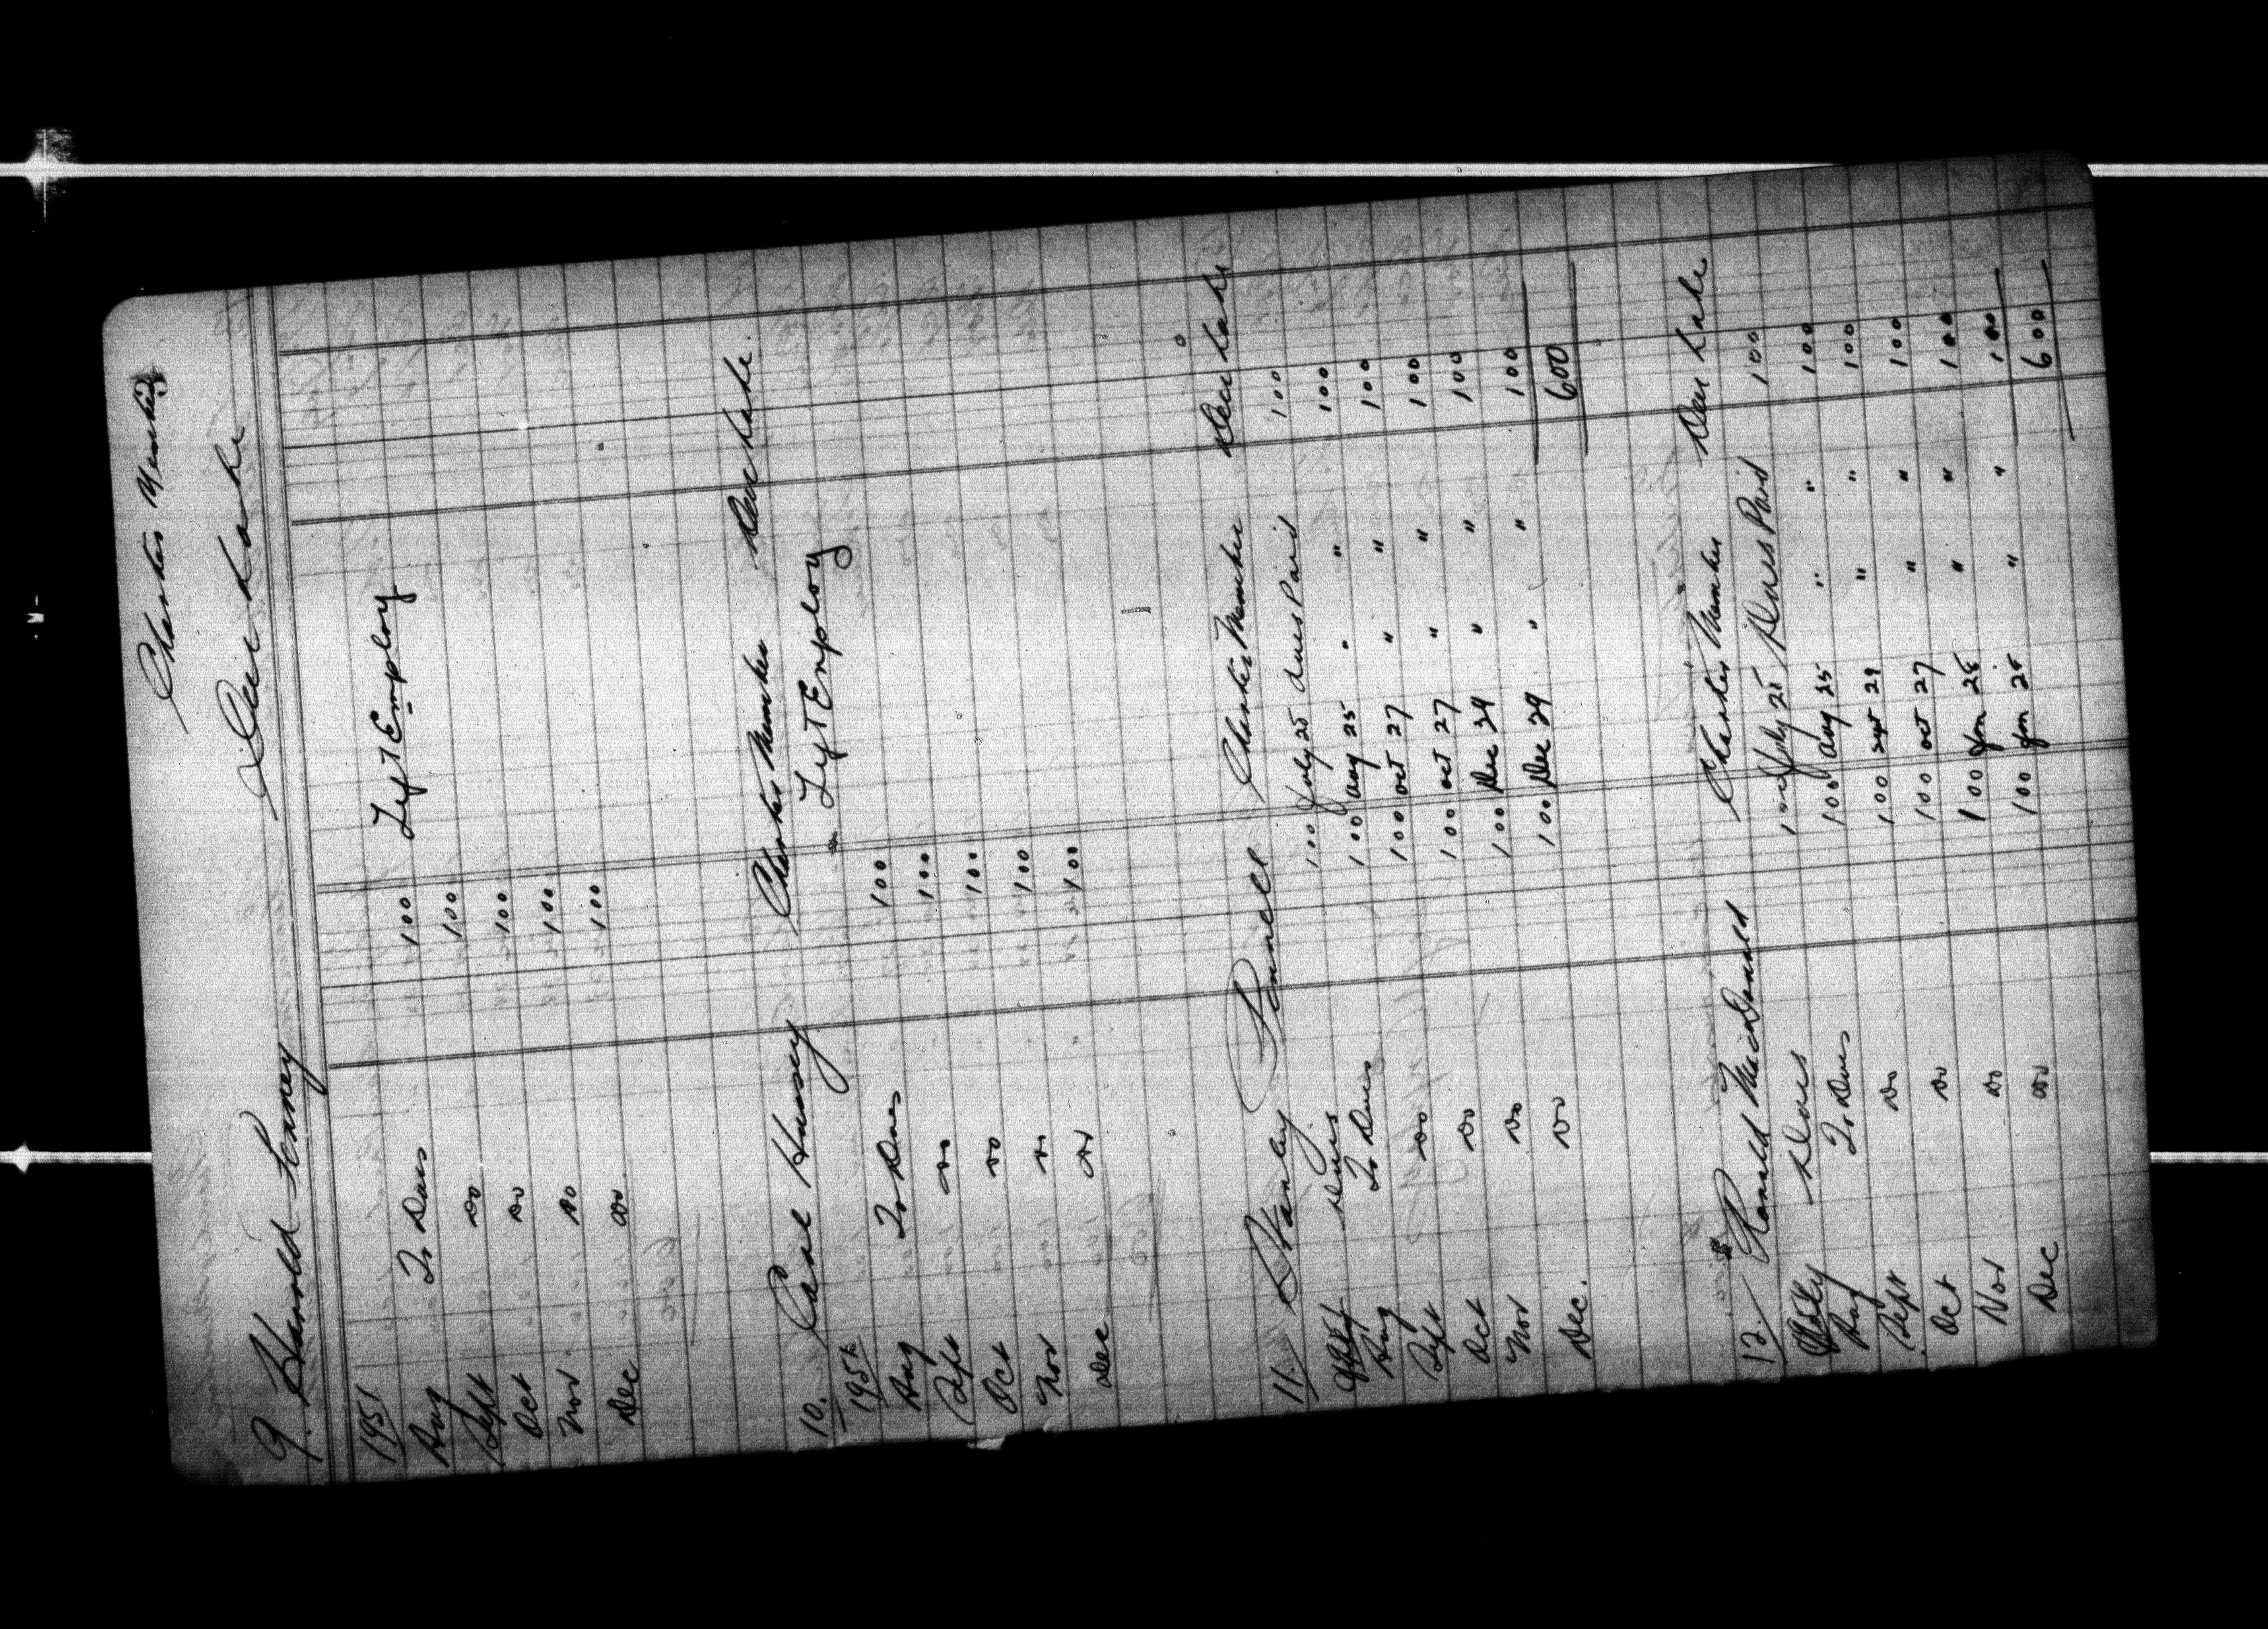 Charter Member
9. Harold Penney Deer Lake
1951
Aug To Dues 100 Left Employ
Sept Do 100
Oct Do 100
Nov Do 100
Dec Do 100
10. Carl Hussey Charter Member Deer Lake.
1951 Left Employ
Aug To Dues 100
Sept Do 100
Oct Do 100
Nov Do 100
Dec Do 100
11. Stanley Charter Member Deer Lake
Dues 100 July 25 Dues Paid 100
Aug To Dues 100 Aug 25 " " 100
Sept Do 100 Oct 27 " " 100
Oct Do 100 Oct 27 " " 100
Nov Do 100 Dec 29 " " 100
Dec. Do 100 Dec 29 " " 100
600
12. Ronald MacDonald Charter Member Deer Lake
July Dues 100 July 25 Dues Paid 100
Aug To Dues 100 Aug 25 " " 100
Sept Do 100 Sept 29 " " 100
Oct Do 100 Oct 27 " " 100
Nov Do 100 Jan 25 " " 100
Dec Do 100 Jan 25 " " 100
600